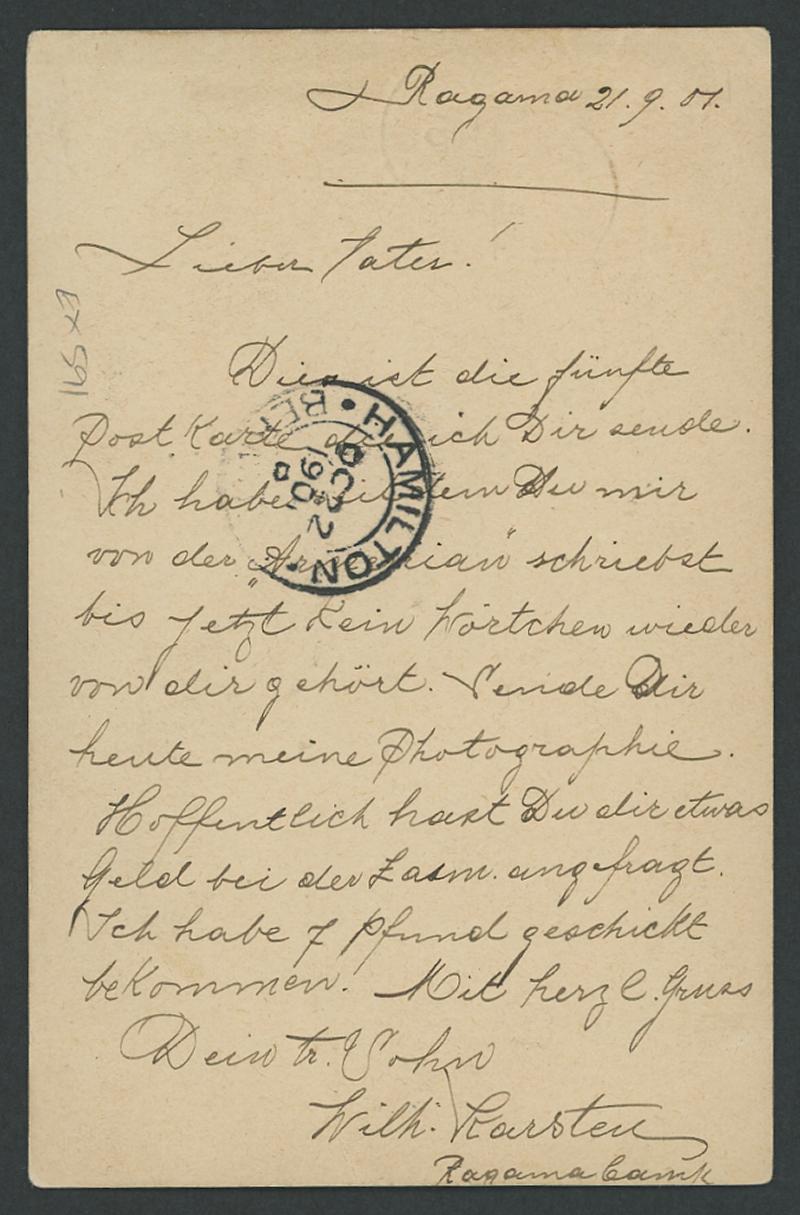 Ragama 21. 9. 01.
Lieber Vater!
Dies ist die fünfte
Post Karte die ich Dir sende.
Ich habe seitdem Du mir
von der "Armenian" schriebst
bis jetzt kein Wörtchen wieder
von dir gehört. Sende Dir
heute meine Photographie.
Hoffentlich hast Du dir etwas
Geld bei der angefragt.
Ich habe 7 Pfund geschickt
bekommen. Mit herzl. Gruss
Dein tr. Sohn
Wilh. Karsten
Ragama Camp
HAMILTON · BER
OC 22
190